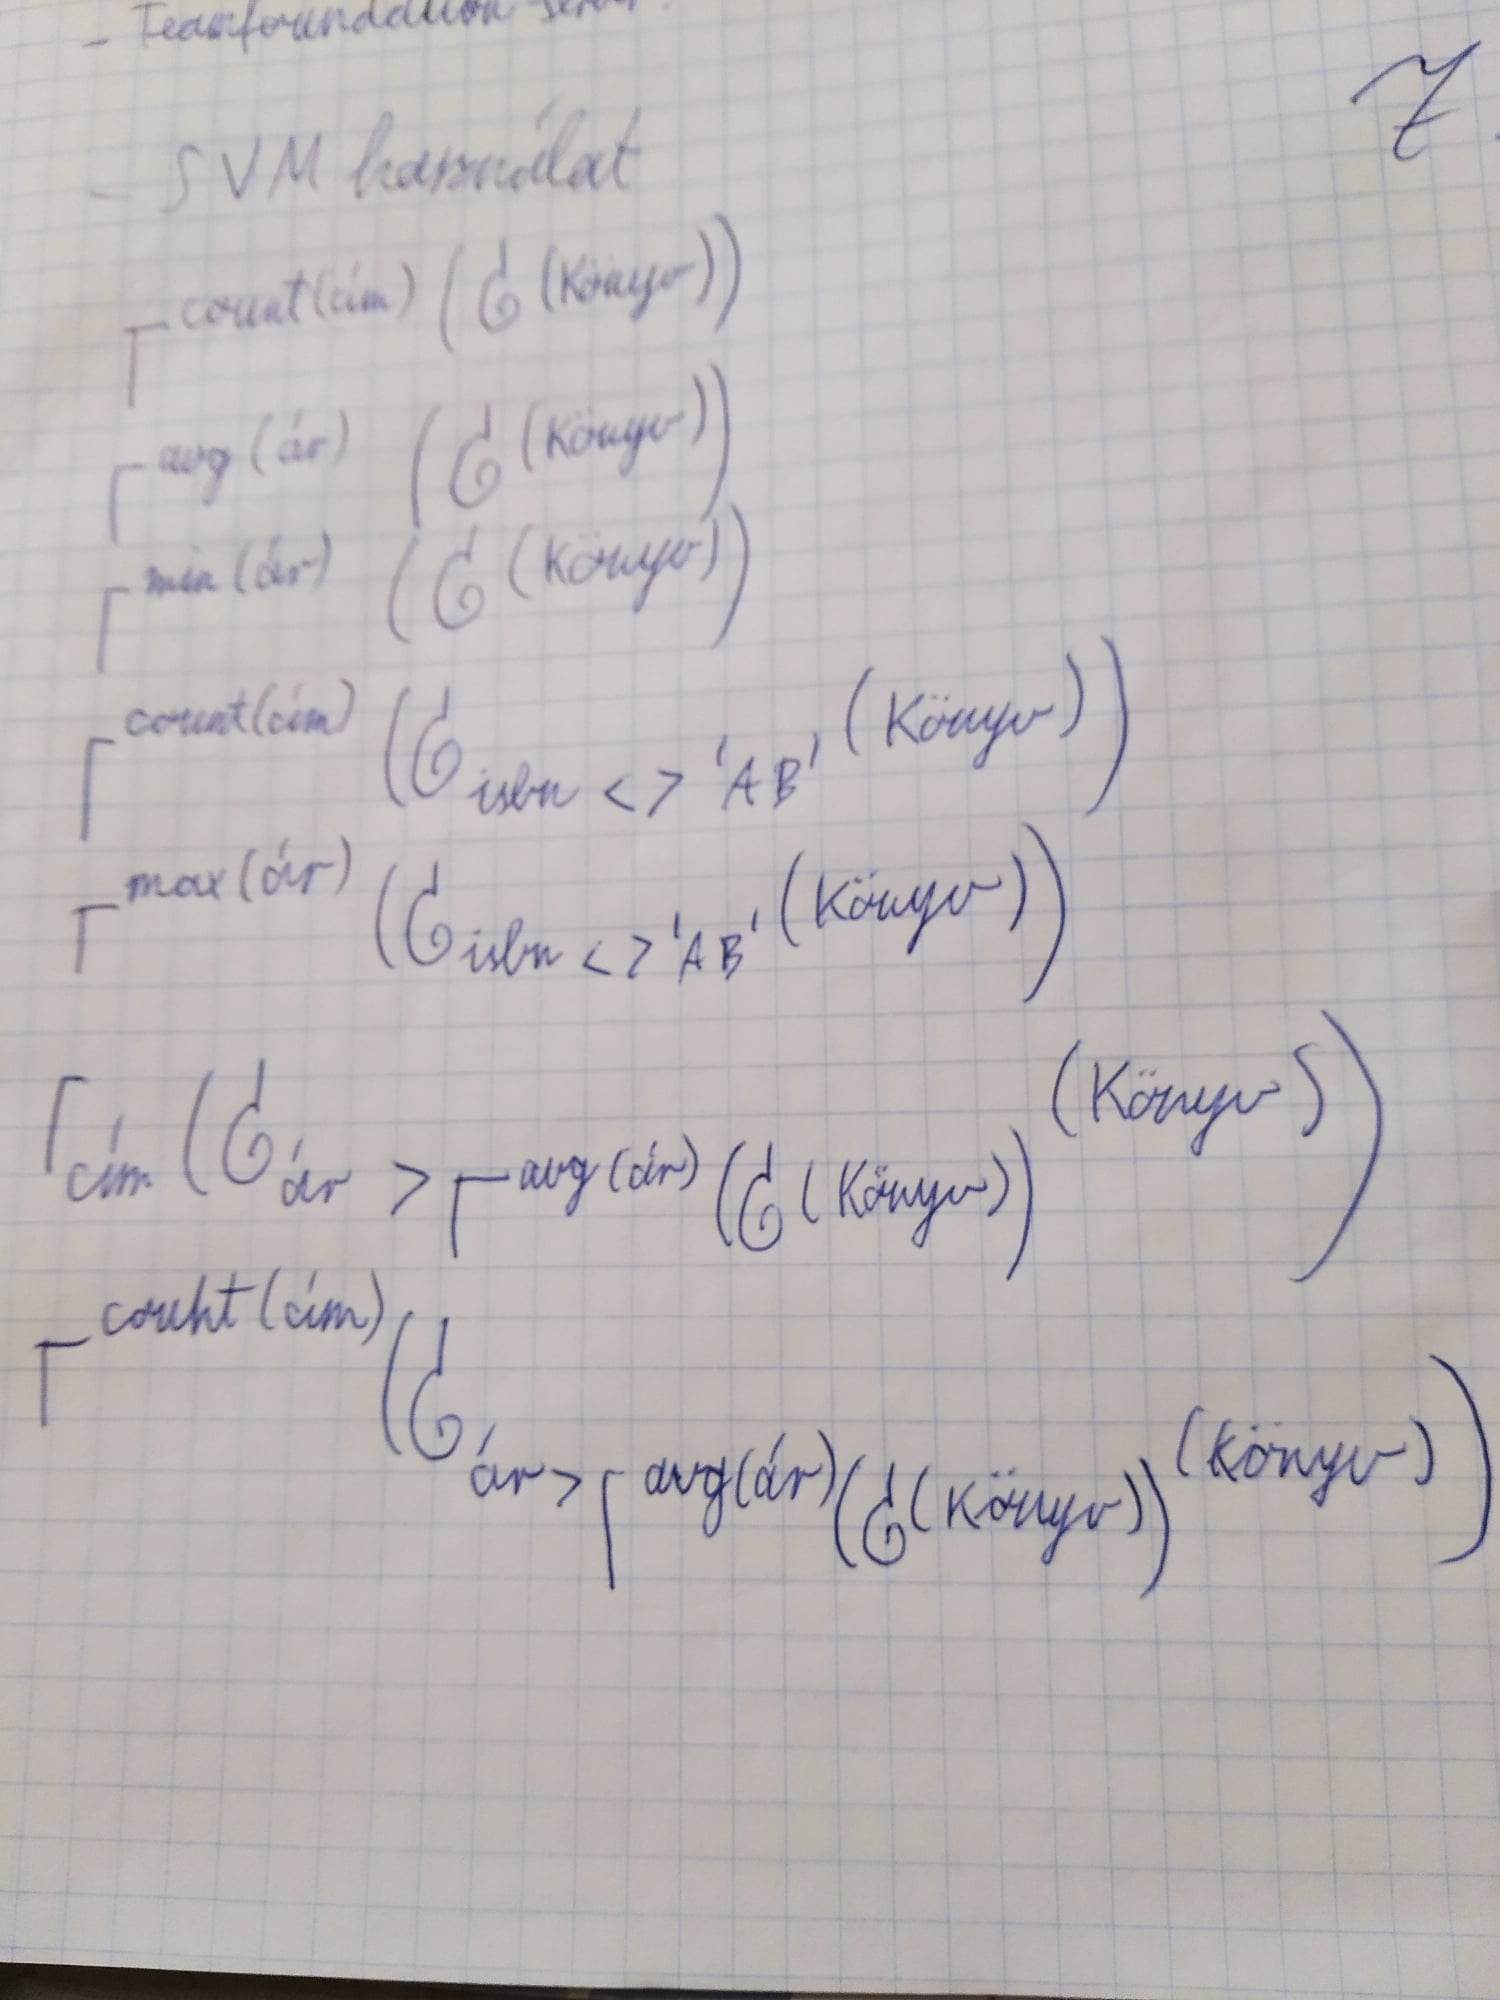 - Teamfoundation server
7.
- SVM használat
Γ^count(cím) (σ (Könyv))
Γ^avg(ár) (σ (Könyv))
Γ^min(ár) (σ (Könyv))
Γ^count(cím) (σ_isbn <> 'AB' (Könyv))
Γ^max(ár) (σ_isbn <> 'AB' (Könyv))
Γ_cím (σ_ár > Γ^avg(ár) (σ (Könyv)) (Könyv))
Γ^count(cím) (σ_ár > Γ^avg(ár) (σ (Könyv)) (Könyv))